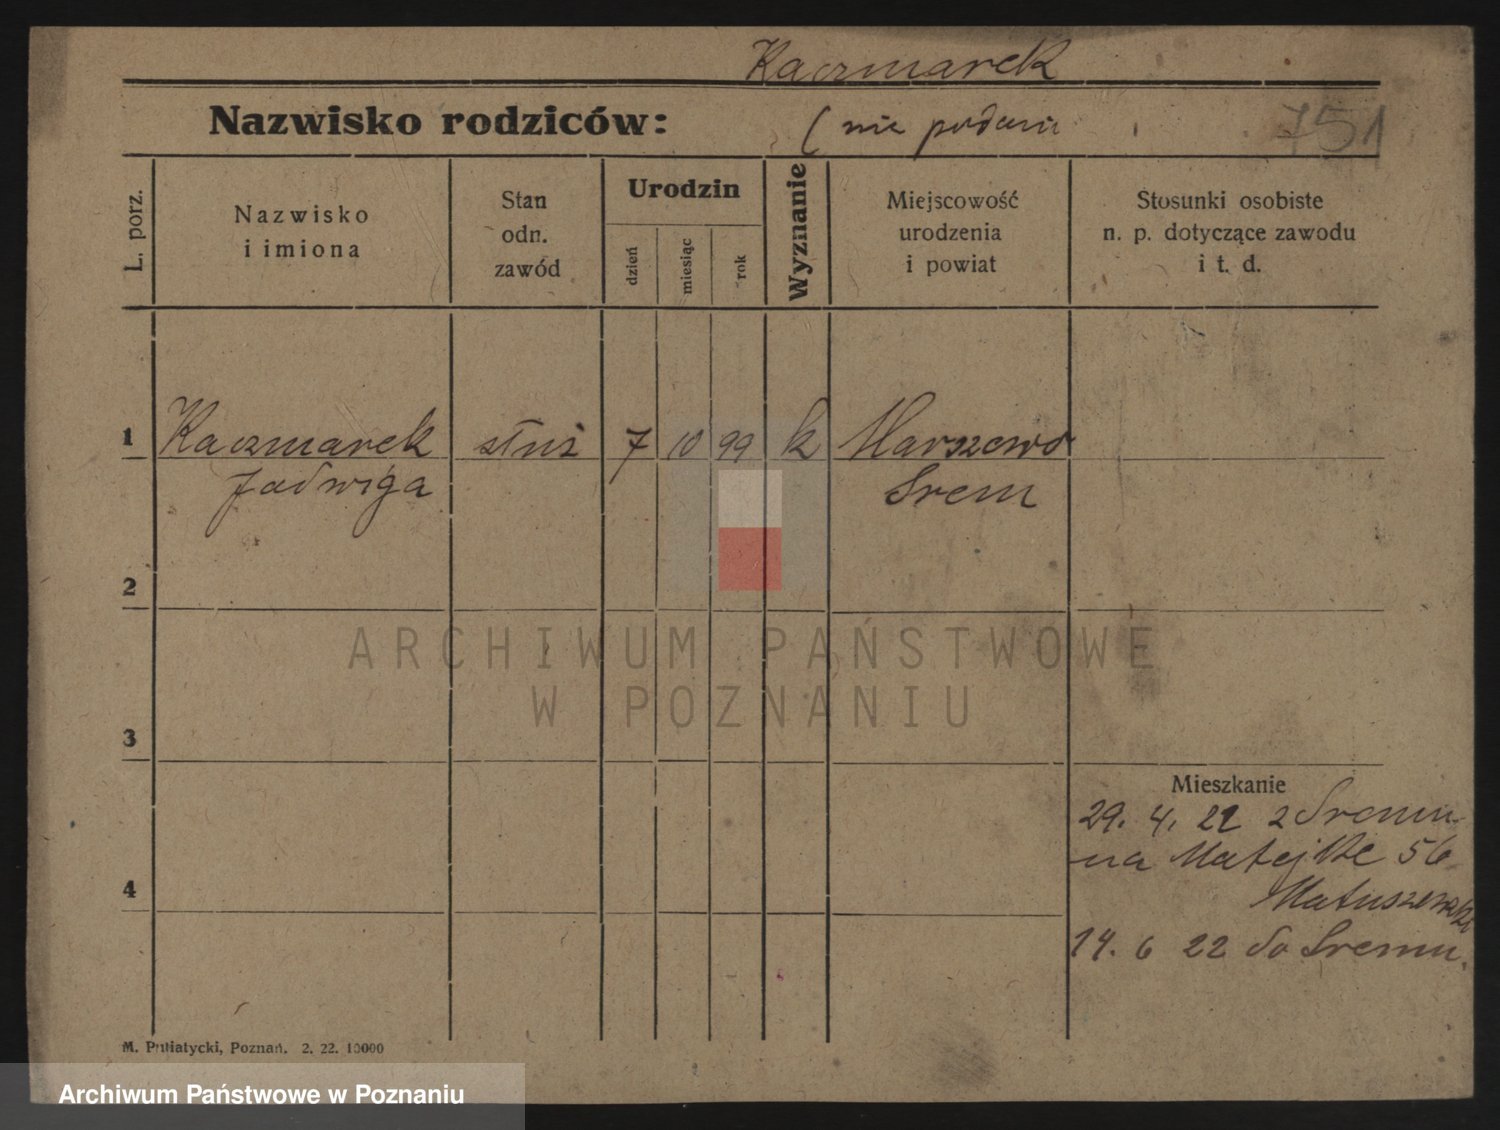 Kaczmarek
Nazwisko rodziców:
( nie podani
751
L. porz.
Nazwisko
i imiona
Stan
odn.
zawód
Urodzin
dzień
miesiąc
rok
Wyznanie
Miejscowość
urodzenia
i powiat
Stosunki osobiste
n. p. dotyczące zawodu
i t. d.
1 Kaczmarek służ 7 10 99 k Marszewo
Jadwiga Srem
2
ARCHIWUM PAŃSTWOWE
W POZNANIU
3
Mieszkanie
29. 4. 22 z Sremu
na Matejki 56
4
Matuszewski
14. 6 22 do Sremu.
M. Putiatycki, Poznań. 2. 22. 10000
Archiwum Państwowe w Poznaniu